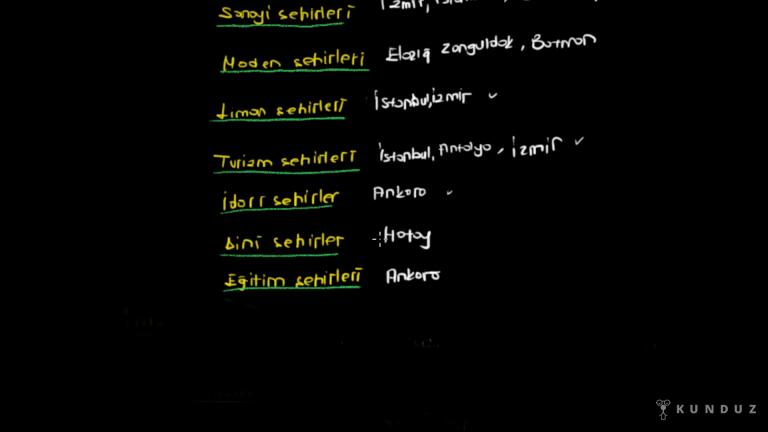 Sanayi şehirleri İzmir,
Maden şehirleri Elazığ Zonguldak, Batman
Liman şehirleri İstanbul, izmir ✓
Turizm şehirleri İstanbul, Antalya, İzmir ✓
İdari şehirler Ankara ✓
Dini şehirler Hatay
Eğitim şehirleri Ankara
KUNDUZ